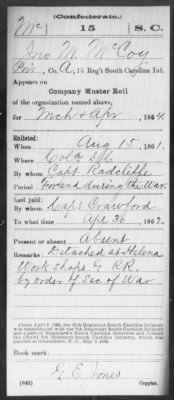 (Confederate.)
Mc 15 S. C.
Jno M. McCoy
Priv, Co. A, 15 Reg't South Carolina Inf.
Appears on
Company Muster Roll
of the organization named above,
for Mch & Apr, 1864.
Enlisted:
When Aug 15, 1861.
Where Cola S.C.
By whom Capt Radcliffe
Period For and during the War.
Last paid:
By whom Capt Crawford
To what time Apr 30, 1862.
Present or absent Absent
Remarks: Detached at Helena
Work Shops G. RR.
by order of Sec of War
Book mark:
G E Jones
(642) Copyist.